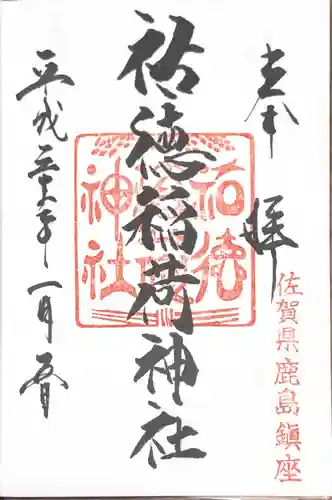 奉拝
佐賀県鹿島鎮座
祐徳稲荷神社
平成三十年一月五日